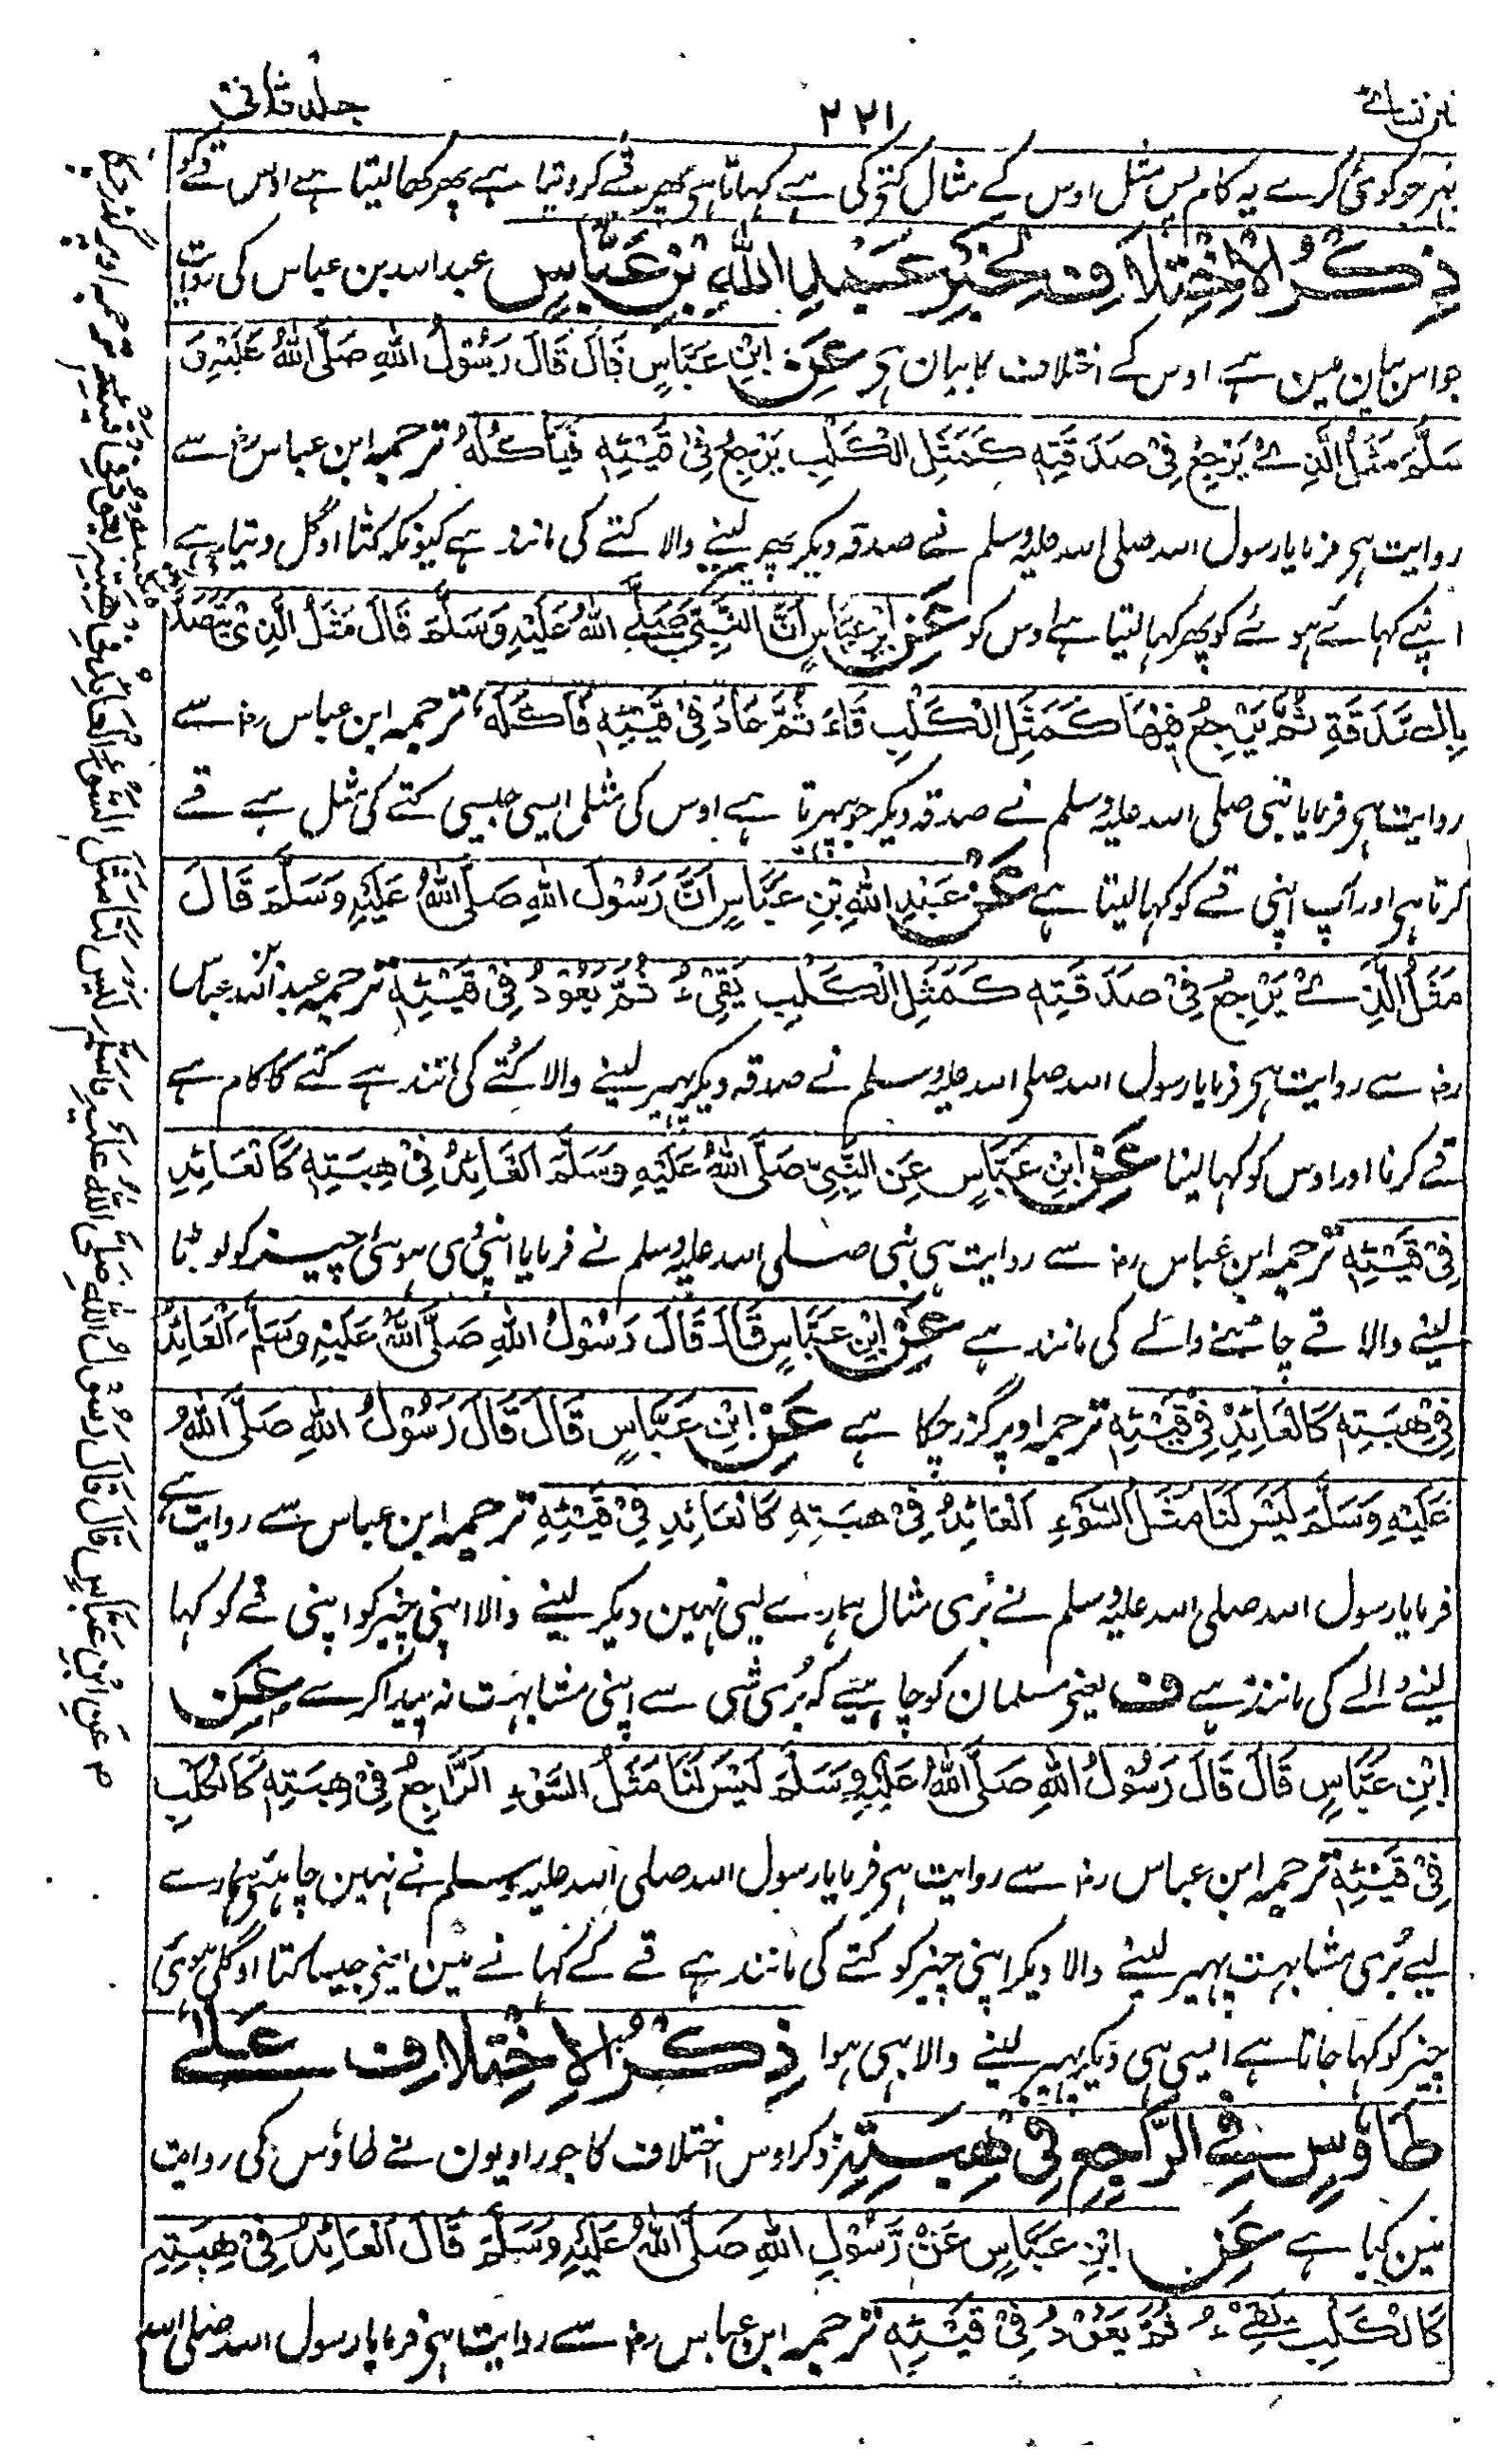 جلد ثانی
۲۲۱
سنن نسائے
پہر جو کوئی کرے یہ کام پس مثل اوس کے مثال کتی کی ہے کہاتا ہی پھر قے کر دیتا ہے پھر کھا لیتا ہے اوس قے کو
ذِكْرُ الْاِخْتِلَافِ لِخَبَرِ عَبْدِ اللّٰهِ بْنِ عَبَّاسٍ عبد اللہ بن عباس کی روایت
جو اس بیان مین ہے اوس کے اختلاف کا بیان ہی عَنْ ابْنِ عَبَّاسٍ قَالَ قَالَ رَسُوْلُ اللّٰهِ صَلَّى اللّٰهُ عَلَيْهِ وَ
سَلَّمَ مَثَلُ الَّذِیْ يَرْجِعُ فِیْ صَدَقَتِهٖ كَمَثَلِ الْكَلْبِ يَرْجِعُ فِیْ قَيْئِهٖ فَيَأْكُلُهُ ترجمہ ابن عباس رض سے
روایت ہی فرمایا رسول اللہ صلی اللہ علیہ وسلم نے صدقہ دیکر پھیر لینے والا کتے کی مانند ہے کیونکہ کتا اوگل دیتا ہے
اپنے کہائے ہوئے کو پھر کہا لیتا ہے اوس کو عَنْ ابْنِ عَبَّاسٍ اَنَّ النَّبِیَّ صَلَّى اللّٰهُ عَلَيْهِ وَسَلَّمَ قَالَ مَثَلُ الَّذِیْ يَتَصَدَّقُ
بِالصَّدَقَةِ ثُمَّ يَرْجِعُ فِيْهَا كَمَثَلِ الْكَلْبِ قَاءَ ثُمَّ عَادَ فِیْ قَيْئِهٖ فَاَكَلَهُ ترجمہ ابن عباس رض سے
روایت ہی فرمایا نبی صلی اللہ علیہ وسلم نے صدقہ دیکر جو پہرتا ہے اوس کی مثل ایسی جیسی کتے کی مثل ہے قے
کرتا ہی اور آپ اپنی قے کو کہا لیتا ہے عَنْ عَبْدِ اللّٰهِ بْنِ عَبَّاسٍ اَنَّ رَسُوْلَ اللّٰهِ صَلَّى اللّٰهُ عَلَيْهِ وَسَلَّمَ قَالَ
مَثَلُ الَّذِیْ يَرْجِعُ فِیْ صَدَقَتِهٖ كَمَثَلِ الْكَلْبِ يَقِیْءُ ثُمَّ يَعُوْدُ فِیْ قَيْئِهٖ ترجمہ عبد اللہ بن عباس
رض سے روایت ہی فرمایا رسول اللہ صلی اللہ علیہ وسلم نے صدقہ دیکر پہیر لینے والا کُتے کی مانند ہے کتے کا کام ہے
قے کرنا اور اوس کو کہا لینا عَنْ ابْنِ عَبَّاسٍ عَنِ النَّبِیِّ صَلَّى اللّٰهُ عَلَيْهِ وَسَلَّمَ الْعَائِدُ فِیْ هِبَتِهٖ كَالْعَائِدِ
فِیْ قَيْئِهٖ ترجمہ ابن عباس رض سے روایت ہی نبی صلی اللہ علیہ وسلم نے فرمایا اپنی دی ہوئی چیز کو لوٹا
لینے والا قے چاٹنے والے کی مانند ہے عَنْ ابْنِ عَبَّاسٍ قَالَ قَالَ رَسُوْلُ اللّٰهِ صَلَّى اللّٰهُ عَلَيْهِ وَسَلَّمَ الْعَائِدُ
فِیْ هِبَتِهٖ كَالْعَائِدِ فِیْ قَيْئِهٖ ترجمہ اوپر گزر چکا ہے عَنْ ابْنِ عَبَّاسٍ قَالَ قَالَ رَسُوْلُ اللّٰهِ صَلَّى اللّٰهُ
عَلَيْهِ وَسَلَّمَ لَيْسَ لَنَا مَثَلُ السَّوْءِ الْعَائِدُ فِیْ هِبَتِهٖ كَالْعَائِدِ فِیْ قَيْئِهٖ ترجمہ ابن عباس سے روایت ہے
فرمایا رسول اللہ صلی اللہ علیہ وسلم نے بُری مثال ہمارے لیی نہین دیکر لینے والا اپنی چیز کو اپنی قے کو کہا
لینے والے کی مانند ہے ف یعنی مسلمان کو چاہیے کہ بُری شی سے اپنی مشابہت نہ پیدا کرے عَنْ
ابْنِ عَبَّاسٍ قَالَ قَالَ رَسُوْلُ اللّٰهِ صَلَّى اللّٰهُ عَلَيْهِ وَسَلَّمَ لَيْسَ لَنَا مَثَلُ السَّوْءِ الرَّاجِعُ فِیْ هِبَتِهٖ كَالْكَلْبِ
فِیْ قَيْئِهٖ ترجمہ ابن عباس رض سے روایت ہی فرمایا رسول اللہ صلی اللہ علیہ وسلم نے نہین چاہئی ہمارے
لیے بُری مشابہت پہیر لینے والا دیکر اپنی چیز کو کتے کی مانند ہے قے کے کہانے مین یعنی جیسا کتا اوگلی ہوئی
چیز کو کہا جاتا ہے ایسی ہی دیکر پہیر لینے والا بہی ہوا ذِكْرُ الْاِخْتِلَافِ عَلٰی
طَاؤُسٍ فِی الرَّاجِعِ فِیْ هِبَتِهٖ ذکر اوس اختلاف کا جو راویون نے طاؤس کی روایت
مین کیا ہے عَنِ ابْنِ عَبَّاسٍ عَنْ رَّسُوْلِ اللّٰهِ صَلَّى اللّٰهُ عَلَيْهِ وَسَلَّمَ قَالَ الْعَائِدُ فِیْ هِبَتِهٖ
كَالْكَلْبِ يَقِیْءُ ثُمَّ يَعُوْدُ فِیْ قَيْئِهٖ ترجمہ ابن عباس رض سے روایت ہی فرمایا رسول اللہ صلی اللہ
م عَنِ ابْنِ عَبَّاسٍ قَالَ قَالَ رَسُوْلُ اللّٰهِ صَلَّى اللّٰهُ عَلَيْهِ وَسَلَّمَ لَيْسَ لَنَا مَثَلُ السَّوْءِ الْعَائِدُ فِیْ هِبَتِهٖ كَالْكَلْبِ يَعُوْدُ فِیْ قَيْئِهٖ ترجمہ اوپر گذر چکا